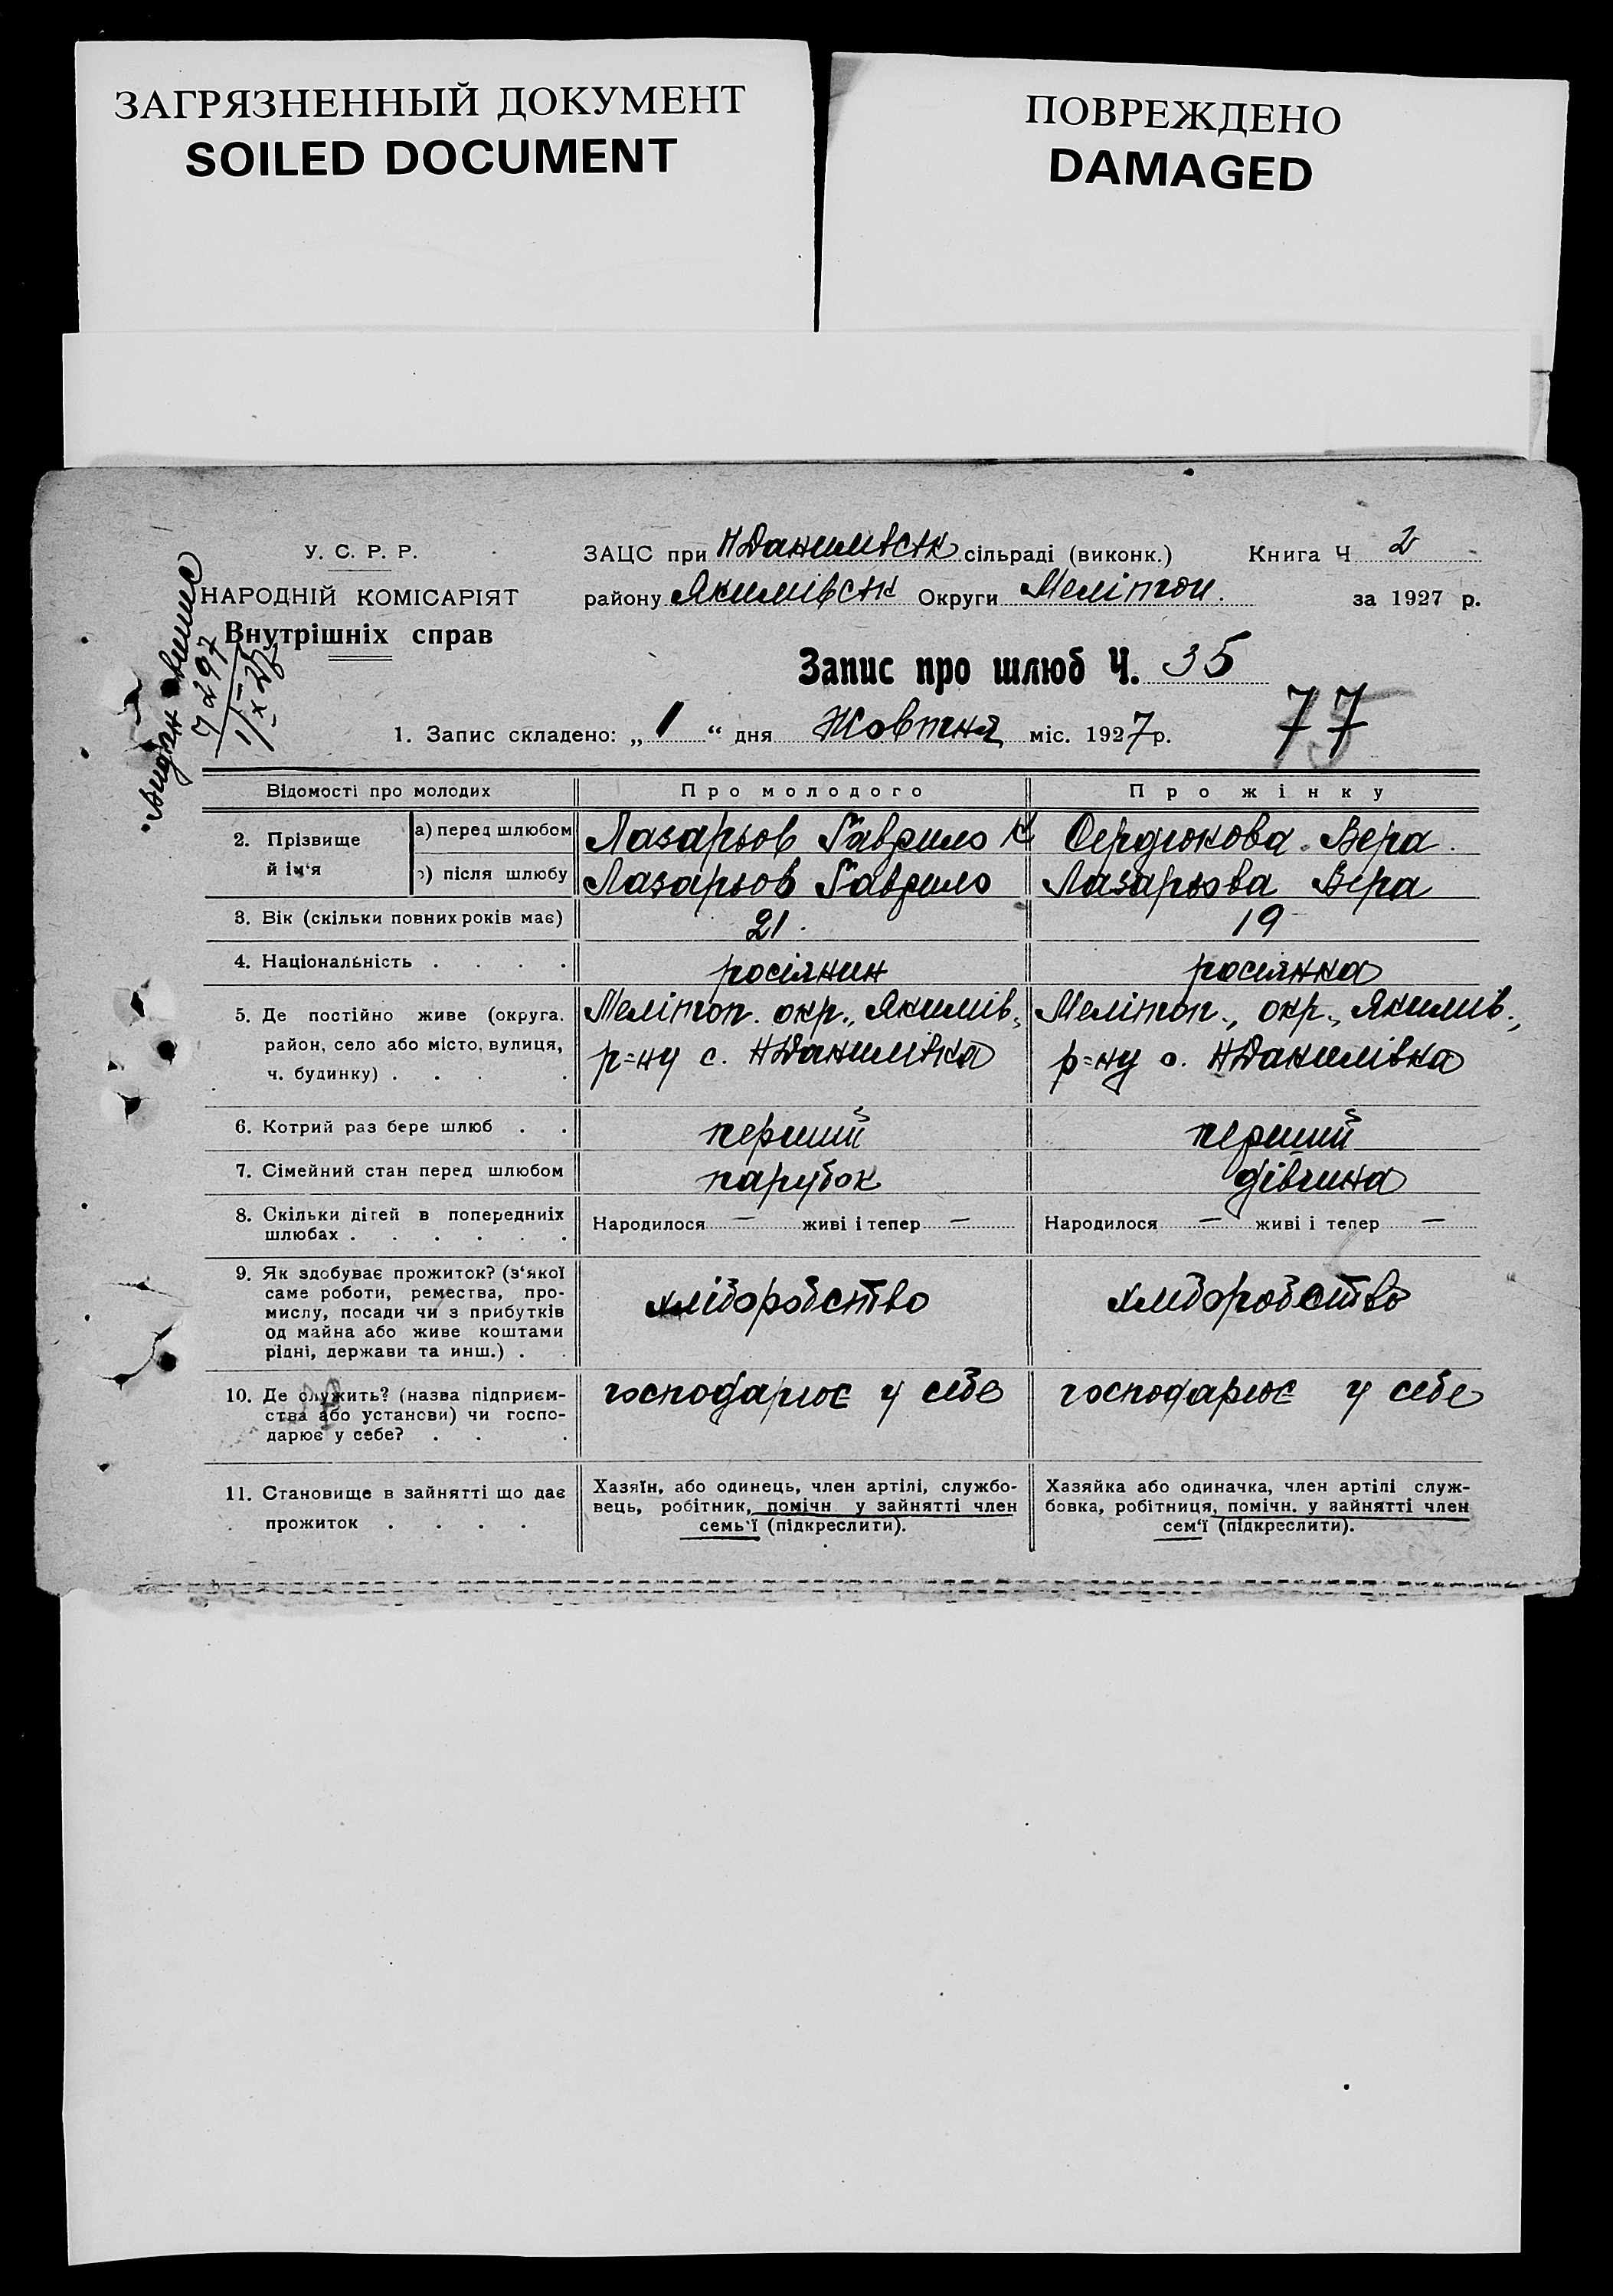 ЗАГРЯЗНЕННЫЙ ДОКУМЕНТ
SOILED DOCUMENT
ПОВРЕЖДЕНО
DAMAGED
У. С. Р. Р.
НАРОДНІЙ КОМІСАРІЯТ
Внутрішніх справ
ЗАЦС при НДанилівськ сільраді (виконк.) Книга Ч 2
району Якимівськ Округи Мелітоп. за 1927 р.
Запис про шлюб Ч. 35
77
1. Запис складено: „ 1 “ дня Жовтня міс. 1927 р.
Видан
Відомості про молодих Про молодого Про жінку
2. Прізвище й ім‘я а) перед шлюбом Лазарьов Гаврило К Сердюкова Вера
) після шлюбу Лазарьов Гаврило Лазарьова Вера
3. Вік (скільки повних років має) 21. 19
4. Національність . . . . росіянин росіянка
5. Де постійно живе (округа, Меліtоп. окр., Якимів. Мелітоп., окр., Якимів.,
район, село або місто, вулиця, р=ну с. НДанилівка р=ну с. НДанилівка
ч. будинку) . . . .
6. Котрий раз бере шлюб . . перший перший
7. Сімейний стан перед шлюбом парубок дівчина
8. Скільки дітей в попередніх Народилося — живі і тепер — Народилося — живі і тепер —
шлюбах . . . . . .
9. Як здобуває прожиток? (з‘якої
саме роботи, ремества, про-
мислу, посади чи з прибутків хліборобство хліборобство
од майна або живе коштами
рідні, держави та инш.) .
10. Де служить? (назва підприєм- господарює у себе господарює у себе
ства або установи) чи госпо-
дарює у себе? . . .
11. Становище в зайнятті що дає Хазяїн, або одинець, член артілі, службо- Хазяйка або одиначка, член артілі служ-
прожиток . . . . вець, робітник, помічн. у зайнятті член бовка, робітниця, помічн. у зайнятті член
семь‘ї (підкреслити). сем‘ї (підкреслити).